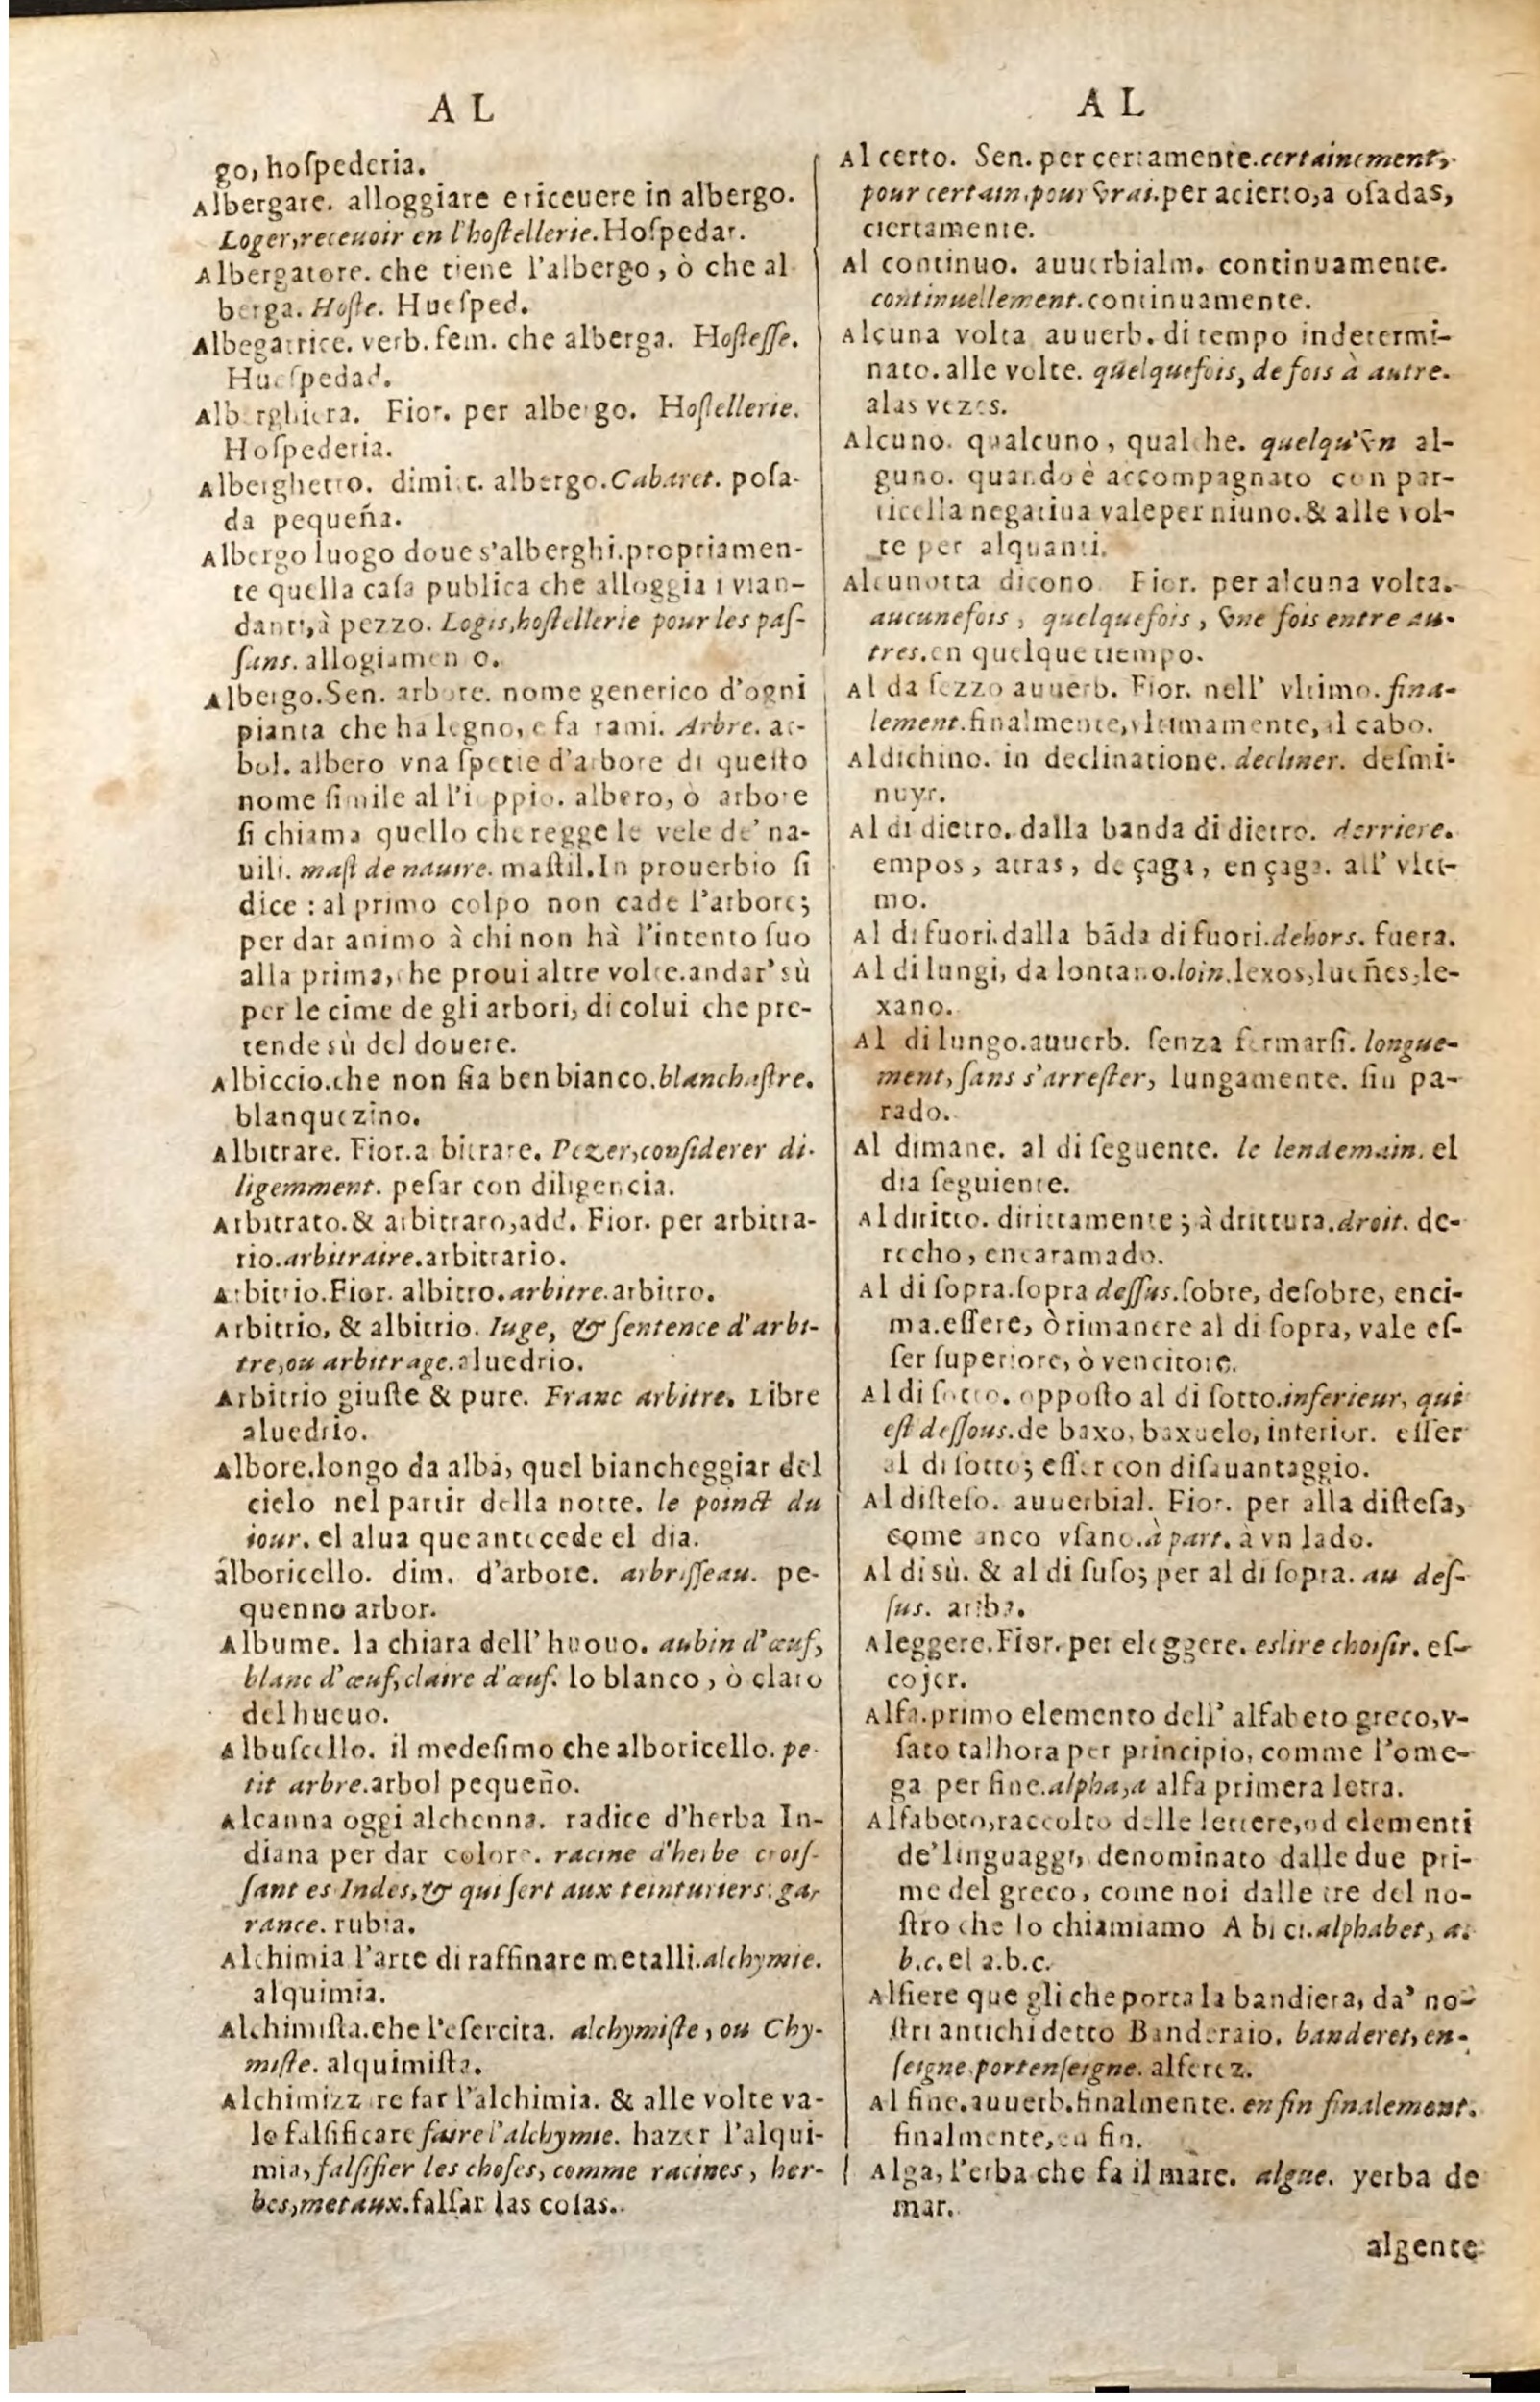 A L
go, hoſpederia.
Albergare. alloggiare e riceuere in albergo.
Loger, receuoir en l'hoſtellerie. Hoſpedar.
Albergatore. che tiene l'albergo, ò che al
berga. Hoſte. Hueſped.
Albegatrice. verb. fem. che alberga. Hoſteſſe.
Hueſpedad.
Alberghiera. Fior. per albergo. Hoſtellerie.
Hoſpederia.
Alberghetto. dimi.t. albergo. Cabaret. poſa-
da pequeña.
Albergo luogo doue s'alberghi. propriamen-
te quella caſa publica che alloggia i vian-
danti, à pezzo. Logis, hoſtellerie pour les paſ-
ſans. allogiamen o.
Albergo. Sen. arbore. nome generico d'ogni
pianta che ha legno, e fa rami. Arbre. ar-
bol. albero vna ſpetie d'arbore di queſto
nome ſimile al l'ioppio. albero, ò arbore
ſi chiama quello che regge le vele de' na-
uili. maſt de nauire. maſtil. In prouerbio ſi
dice : al primo colpo non cade l'arbore;
per dar animo à chi non hà l'intento ſuo
alla prima, che proui altre volte. andar' sù
per le cime de gli arbori, di colui che pre-
tende sù del douere.
Albiccio. che non ſia ben bianco. blanchaſtre.
blanquezino.
Albitrare. Fior. a bitrare. Pezer, conſiderer di-
ligemment. peſar con diligencia.
Arbitrato. & arbitraro, add. Fior. per arbitra-
rio. arbitraire. arbitrario.
Arbitrio. Fior. albitro. arbitre. arbitro.
Arbitrio, & albitrio. Iuge, & ſentence d'arbi-
tre, ou arbitrage. aluedrio.
Arbitrio giuſte & pure. Franc arbitre. Libre
aluedrio.
Albore. longo da alba, quel biancheggiar del
cielo nel partir della notte. le poinct du
iour. el alua que antecede el dia.
alboricello. dim. d'arbore. arbriſſeau. pe-
quenno arbor.
Albume. la chiara dell' huouo. aubin d'œuf,
blanc d'œuf, claire d'œuf. lo blanco, ò claro
del hueuo.
Albuſcello. il medeſimo che alboricello. pe-
tit arbre. arbol pequeño.
Alcanna oggi alchenna. radice d'herba In-
diana per dar colore. racine d'herbe croiſ-
ſant es Indes, & qui ſert aux teinturiers: gar
rance. rubia.
Alchimia l'arte di raffinare metalli. alchymie.
alquimia.
Alchimiſta. che l'eſercita. alchymiſte, ou Chy-
miſte. alquimiſta.
Alchimizz re far l'alchimia. & alle volte va-
le falſificare faire l'alchymie. hazer l'alqui-
mia, falſifier les choſes, comme racines, her-
bes, metaux. falſar las coſas.
A L
Al certo. Sen. per certamente. certainement,
pour certain. pour vrai. per acierto, a oſadas,
ciertamente.
Al continuo. auuerbialm. continuamente.
continuellement. continuamente.
Alcuna volta auuerb. di tempo indetermi-
nato. alle volte. quelquefois, de fois à autre.
alas vezes.
Alcuno. qualcuno, qualche. quelqu'vn al-
guno. quando è accompagnato con par-
ticella negatiua vale per niuno. & alle vol-
te per alquanti.
Alcunotta dicono Fior. per alcuna volta.
aucunefois, quelquefois, vne fois entre au-
tres. en quelque tiempo.
Al da ſezzo auuerb. Fior. nell' vltimo. fina-
lement. finalmente, vltimamente, al cabo.
Aldichino. in declinatione. decliner. deſmi-
nuyr.
Al di dietro. dalla banda di dietro. derriere.
empos, atras, de çaga, en çaga. all' vlti-
mo.
Al di fuori. dalla bãda di fuori. dehors. fuera.
Al di lungi, da lontano. loin. lexos, lueñes, le-
xano.
Al di lungo. auuerb. ſenza fermarſi. longue-
ment, ſans s'arreſter, lungamente. ſin pa-
rado.
Al dimane. al di ſeguente. le lendemain. el
dia ſeguiente.
Al diritto. dirittamente; à drittura. droit. de-
recho, encaramado.
Al di ſopra. ſopra deſſus. ſobre, deſobre, enci-
ma. eſſere, ò rimanere al di ſopra, vale eſ-
ſer ſuperiore, ò vencitore.
Al di ſotto. oppoſto al di ſotto. inferieur, qui
eſt deſſous. de baxo, baxuelo, interior. eſſer
al di ſotto; eſſer con diſauantaggio.
Al diſteſo. auuerbial. Fior. per alla diſteſa,
come anco vſano. à part. à vn lado.
Al di sù. & al di ſuſo; per al di ſopra. au deſ-
ſus. ariba.
Aleggere. Fior. per eleggere. eslire choiſir. eſ-
cojer.
Alfa. primo elemento dell' alfabeto greco, v-
ſato talhora per principio, comme l'ome-
ga per fine. alpha, a alfa primera letra.
Alfaboto, raccolto delle lettere, od elementi
de' linguaggi, denominato dalle due pri-
me del greco, come noi dalle tre del no-
ſtro che lo chiamiamo A bi ci. alphabet, a.
b.c. el a.b.c.
Alfiere que gli che porta la bandiera, da' no-
ſtri antichi detto Banderaio. banderet, en-
ſeigne. portenſeigne. alferez.
Al fine. auuerb. finalmente. en fin finalement.
finalmente, en fin.
Alga, l'erba che fa il mare. algue. yerba de
mar.
algente